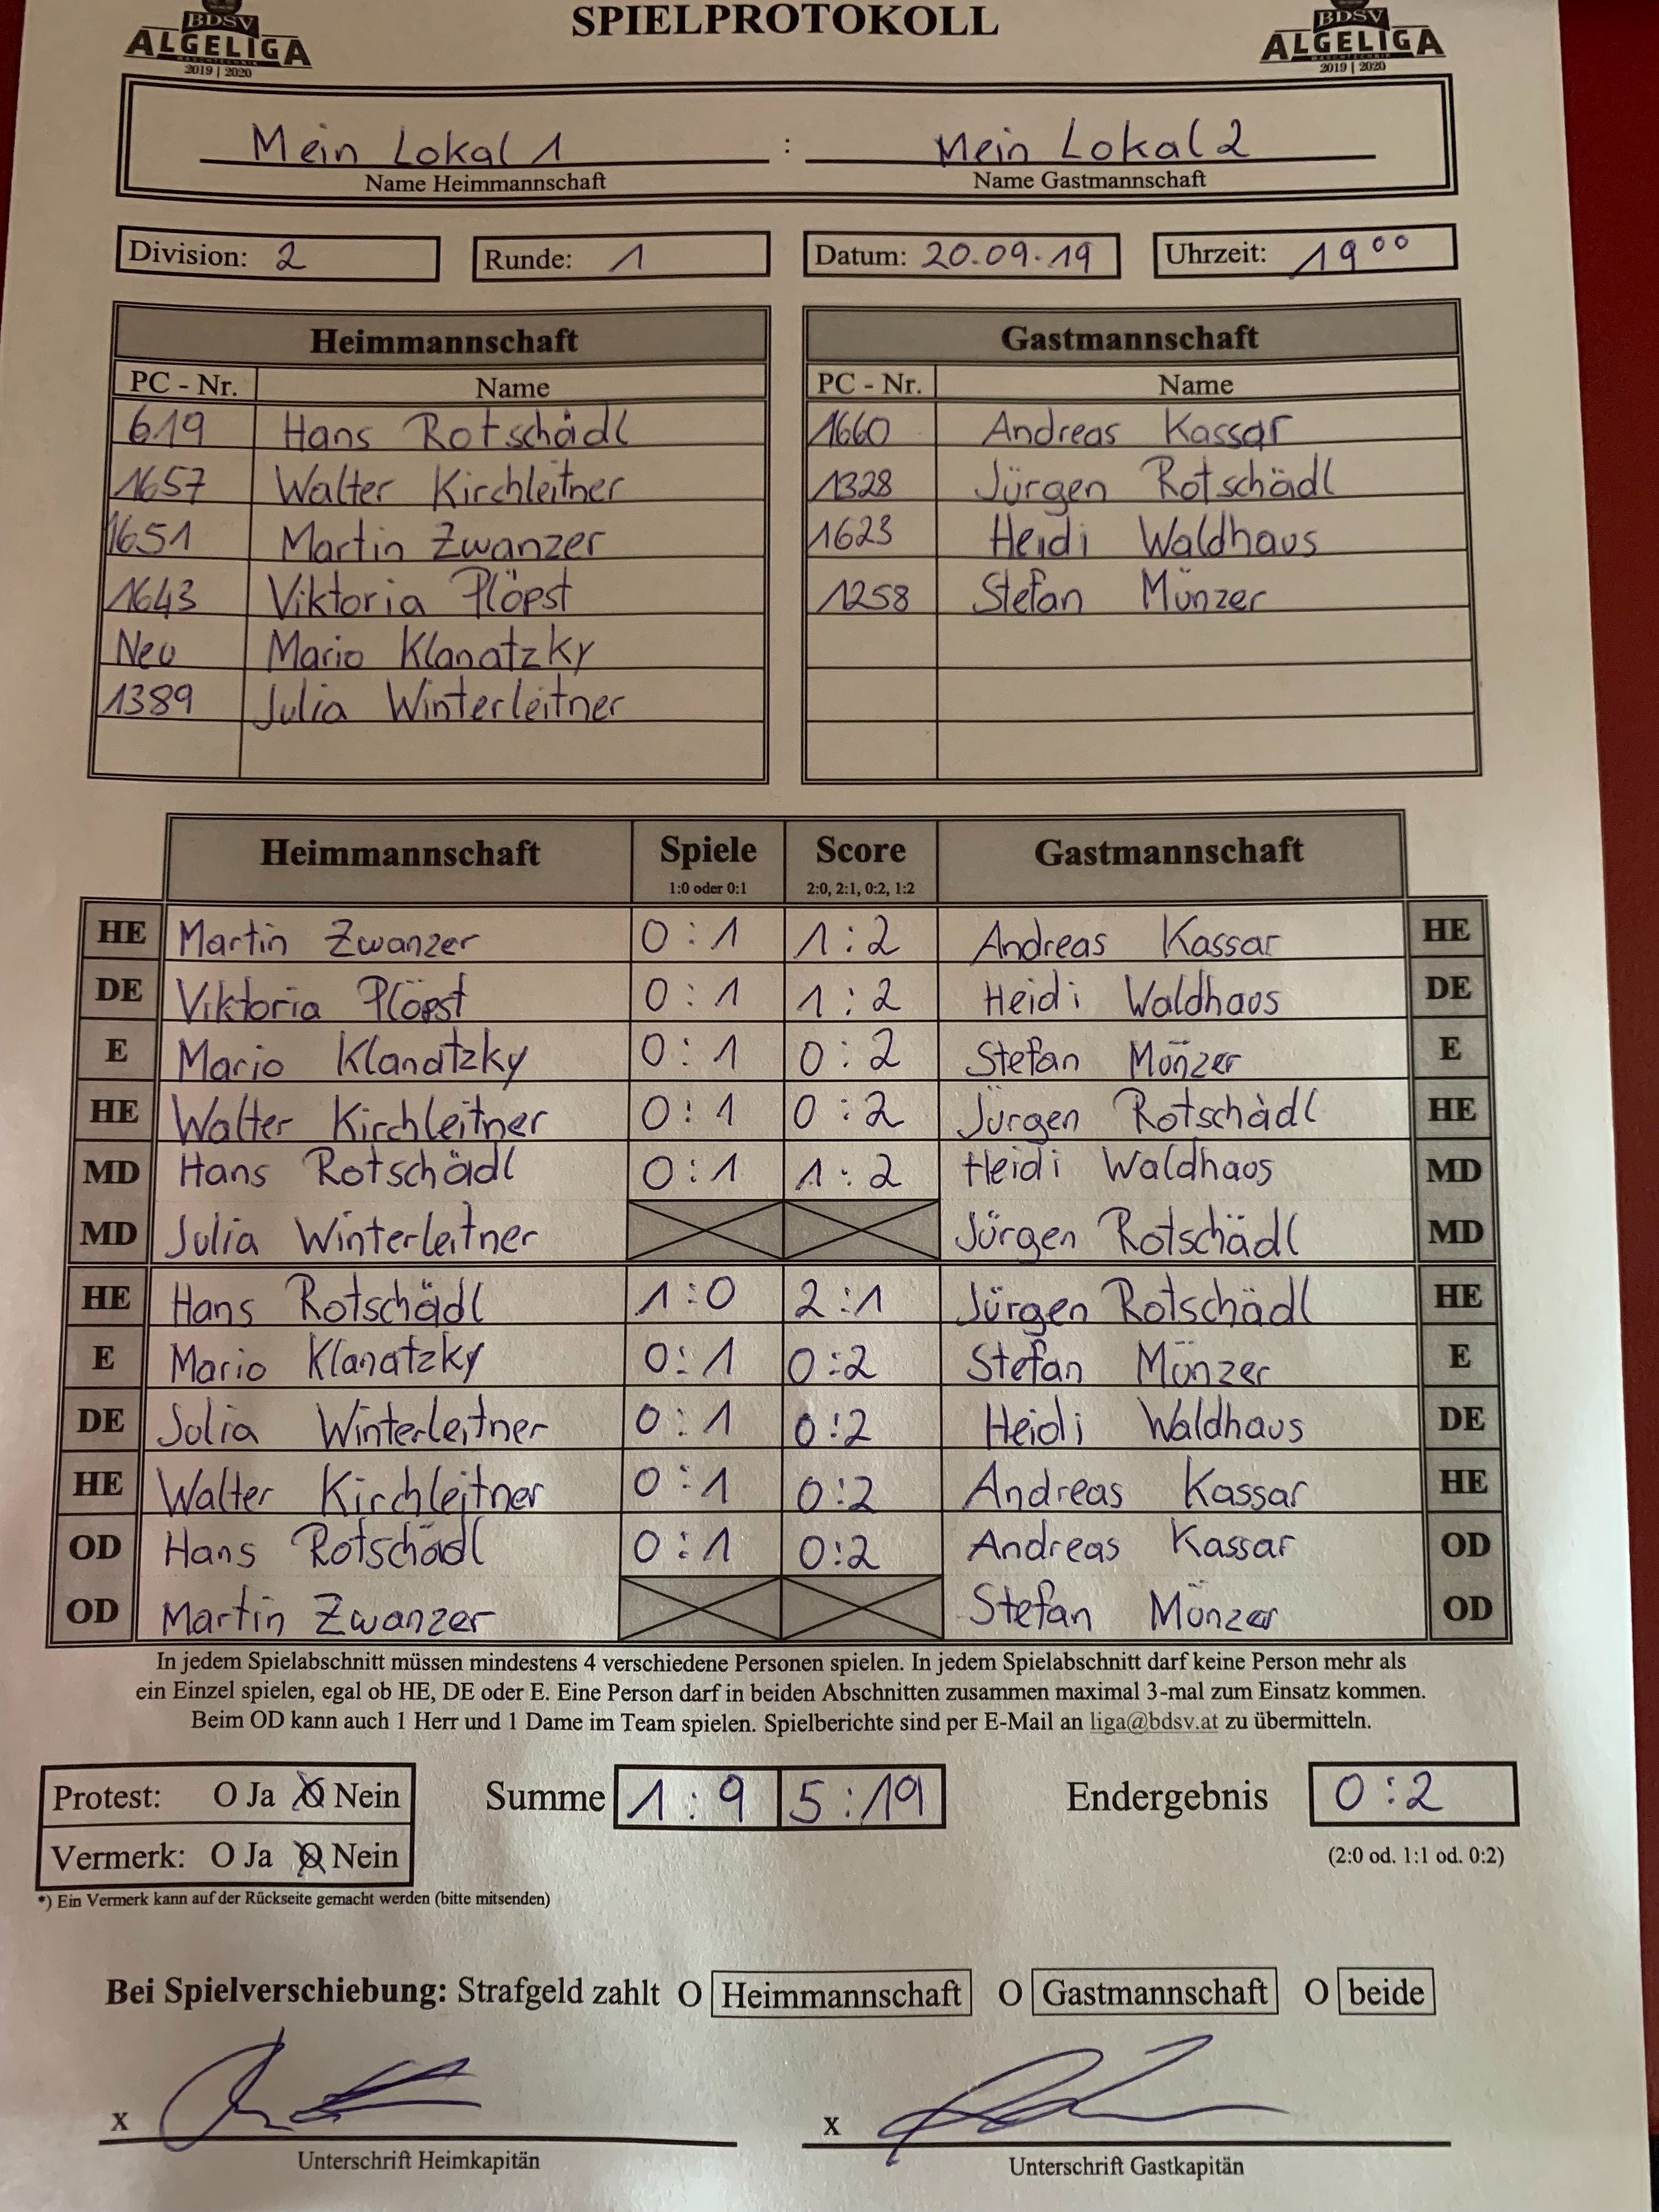 BDSV SPIELPROTOKOLL BDSV
ALGELIGA ALGELIGA
2019 | 2020 2019 | 2020
Mein Lokal 1 : Mein Lokal 2
Name Heimmannschaft Name Gastmannschaft
Division: 2 Runde: 1 Datum: 20.09.19 Uhrzeit: 19⁰⁰
Heimmannschaft Gastmannschaft
PC - Nr. Name PC - Nr. Name
619 Hans Rotschädl 1660 Andreas Kassar
1657 Walter Kirchleitner 1328 Jürgen Rotschädl
1651 Martin Zwanzer 1623 Heidi Waldhaus
1643 Viktoria Plöpst 1258 Stefan Münzer
Neu Mario Klanatzky
1389 Julia Winterleitner
Heimmannschaft Spiele Score Gastmannschaft
1:0 oder 0:1 2:0, 2:1, 0:2, 1:2
HE Martin Zwanzer 0:1 1:2 Andreas Kassar HE
DE Viktoria Plöpst 0:1 1:2 Heidi Waldhaus DE
E Mario Klanatzky 0:1 0:2 Stefan Münzer E
HE Walter Kirchleitner 0:1 0:2 Jürgen Rotschädl HE
MD Hans Rotschädl 0:1 1:2 Heidi Waldhaus MD
MD Julia Winterleitner Jürgen Rotschädl MD
HE Hans Rotschädl 1:0 2:1 Jürgen Rotschädl HE
E Mario Klanatzky 0:1 0:2 Stefan Münzer E
DE Julia Winterleitner 0:1 0:2 Heidi Waldhaus DE
HE Walter Kirchleitner 0:1 0:2 Andreas Kassar HE
OD Hans Rotschädl 0:1 0:2 Andreas Kassar OD
OD Martin Zwanzer Stefan Münzer OD
In jedem Spielabschnitt müssen mindestens 4 verschiedene Personen spielen. In jedem Spielabschnitt darf keine Person mehr als
ein Einzel spielen, egal ob HE, DE oder E. Eine Person darf in beiden Abschnitten zusammen maximal 3-mal zum Einsatz kommen.
Beim OD kann auch 1 Herr und 1 Dame im Team spielen. Spielberichte sind per E-Mail an liga@bdsv.at zu übermitteln.
Protest: O Ja O Nein Summe 1:9 5:19 Endergebnis 0:2
Vermerk: O Ja O Nein (2:0 od. 1:1 od. 0:2)
*) Ein Vermerk kann auf der Rückseite gemacht werden (bitte mitsenden)
Bei Spielverschiebung: Strafgeld zahlt O Heimmannschaft O Gastmannschaft O beide
x x
Unterschrift Heimkapitän Unterschrift Gastkapitän